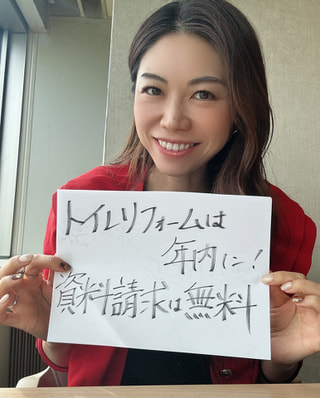 トイレリフォームは
年内に!
資料請求は無料